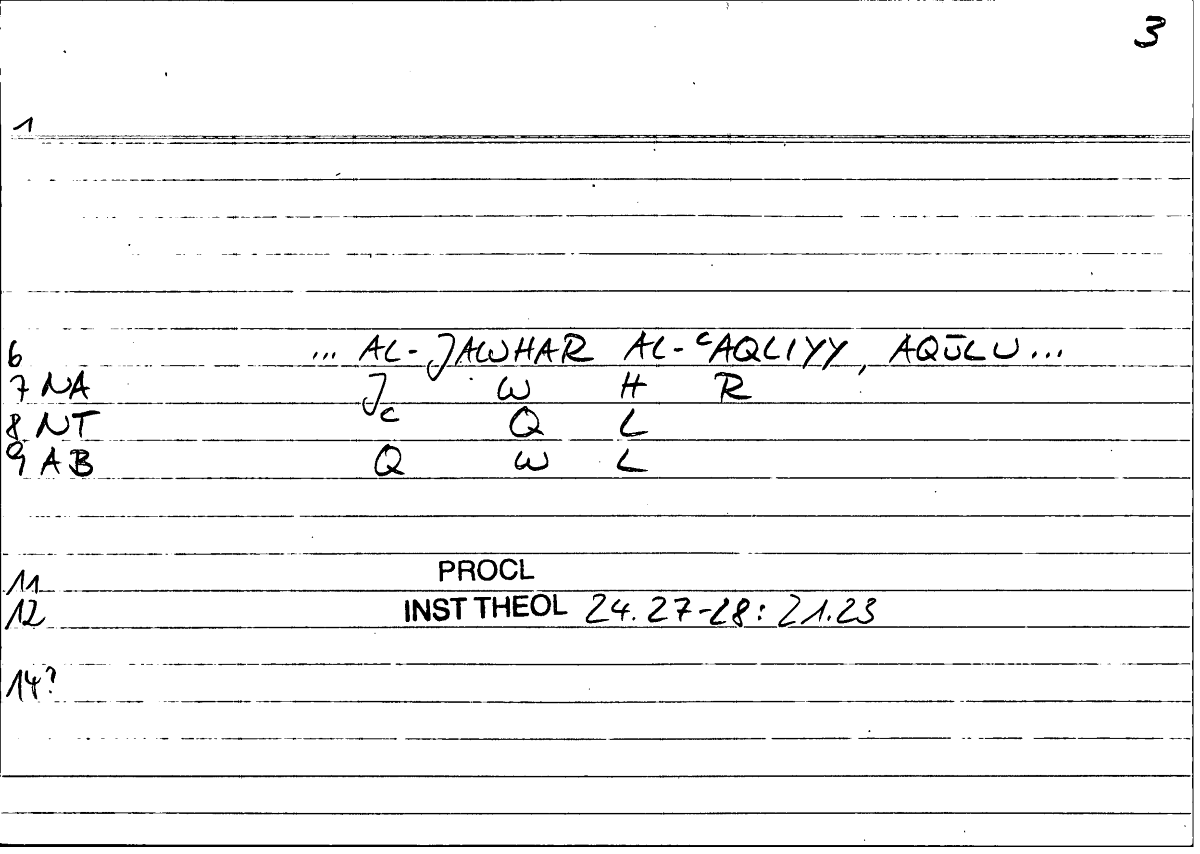 3
1
6 ... AL-JAWHAR AL-ᶜAQLIYY, AQŪLU...
7 NA J W H R
8 NT ᶜ Q L
9 AB Q W L
11 PROCL
12 INST THEOL 24.27-28: 21.23
14?